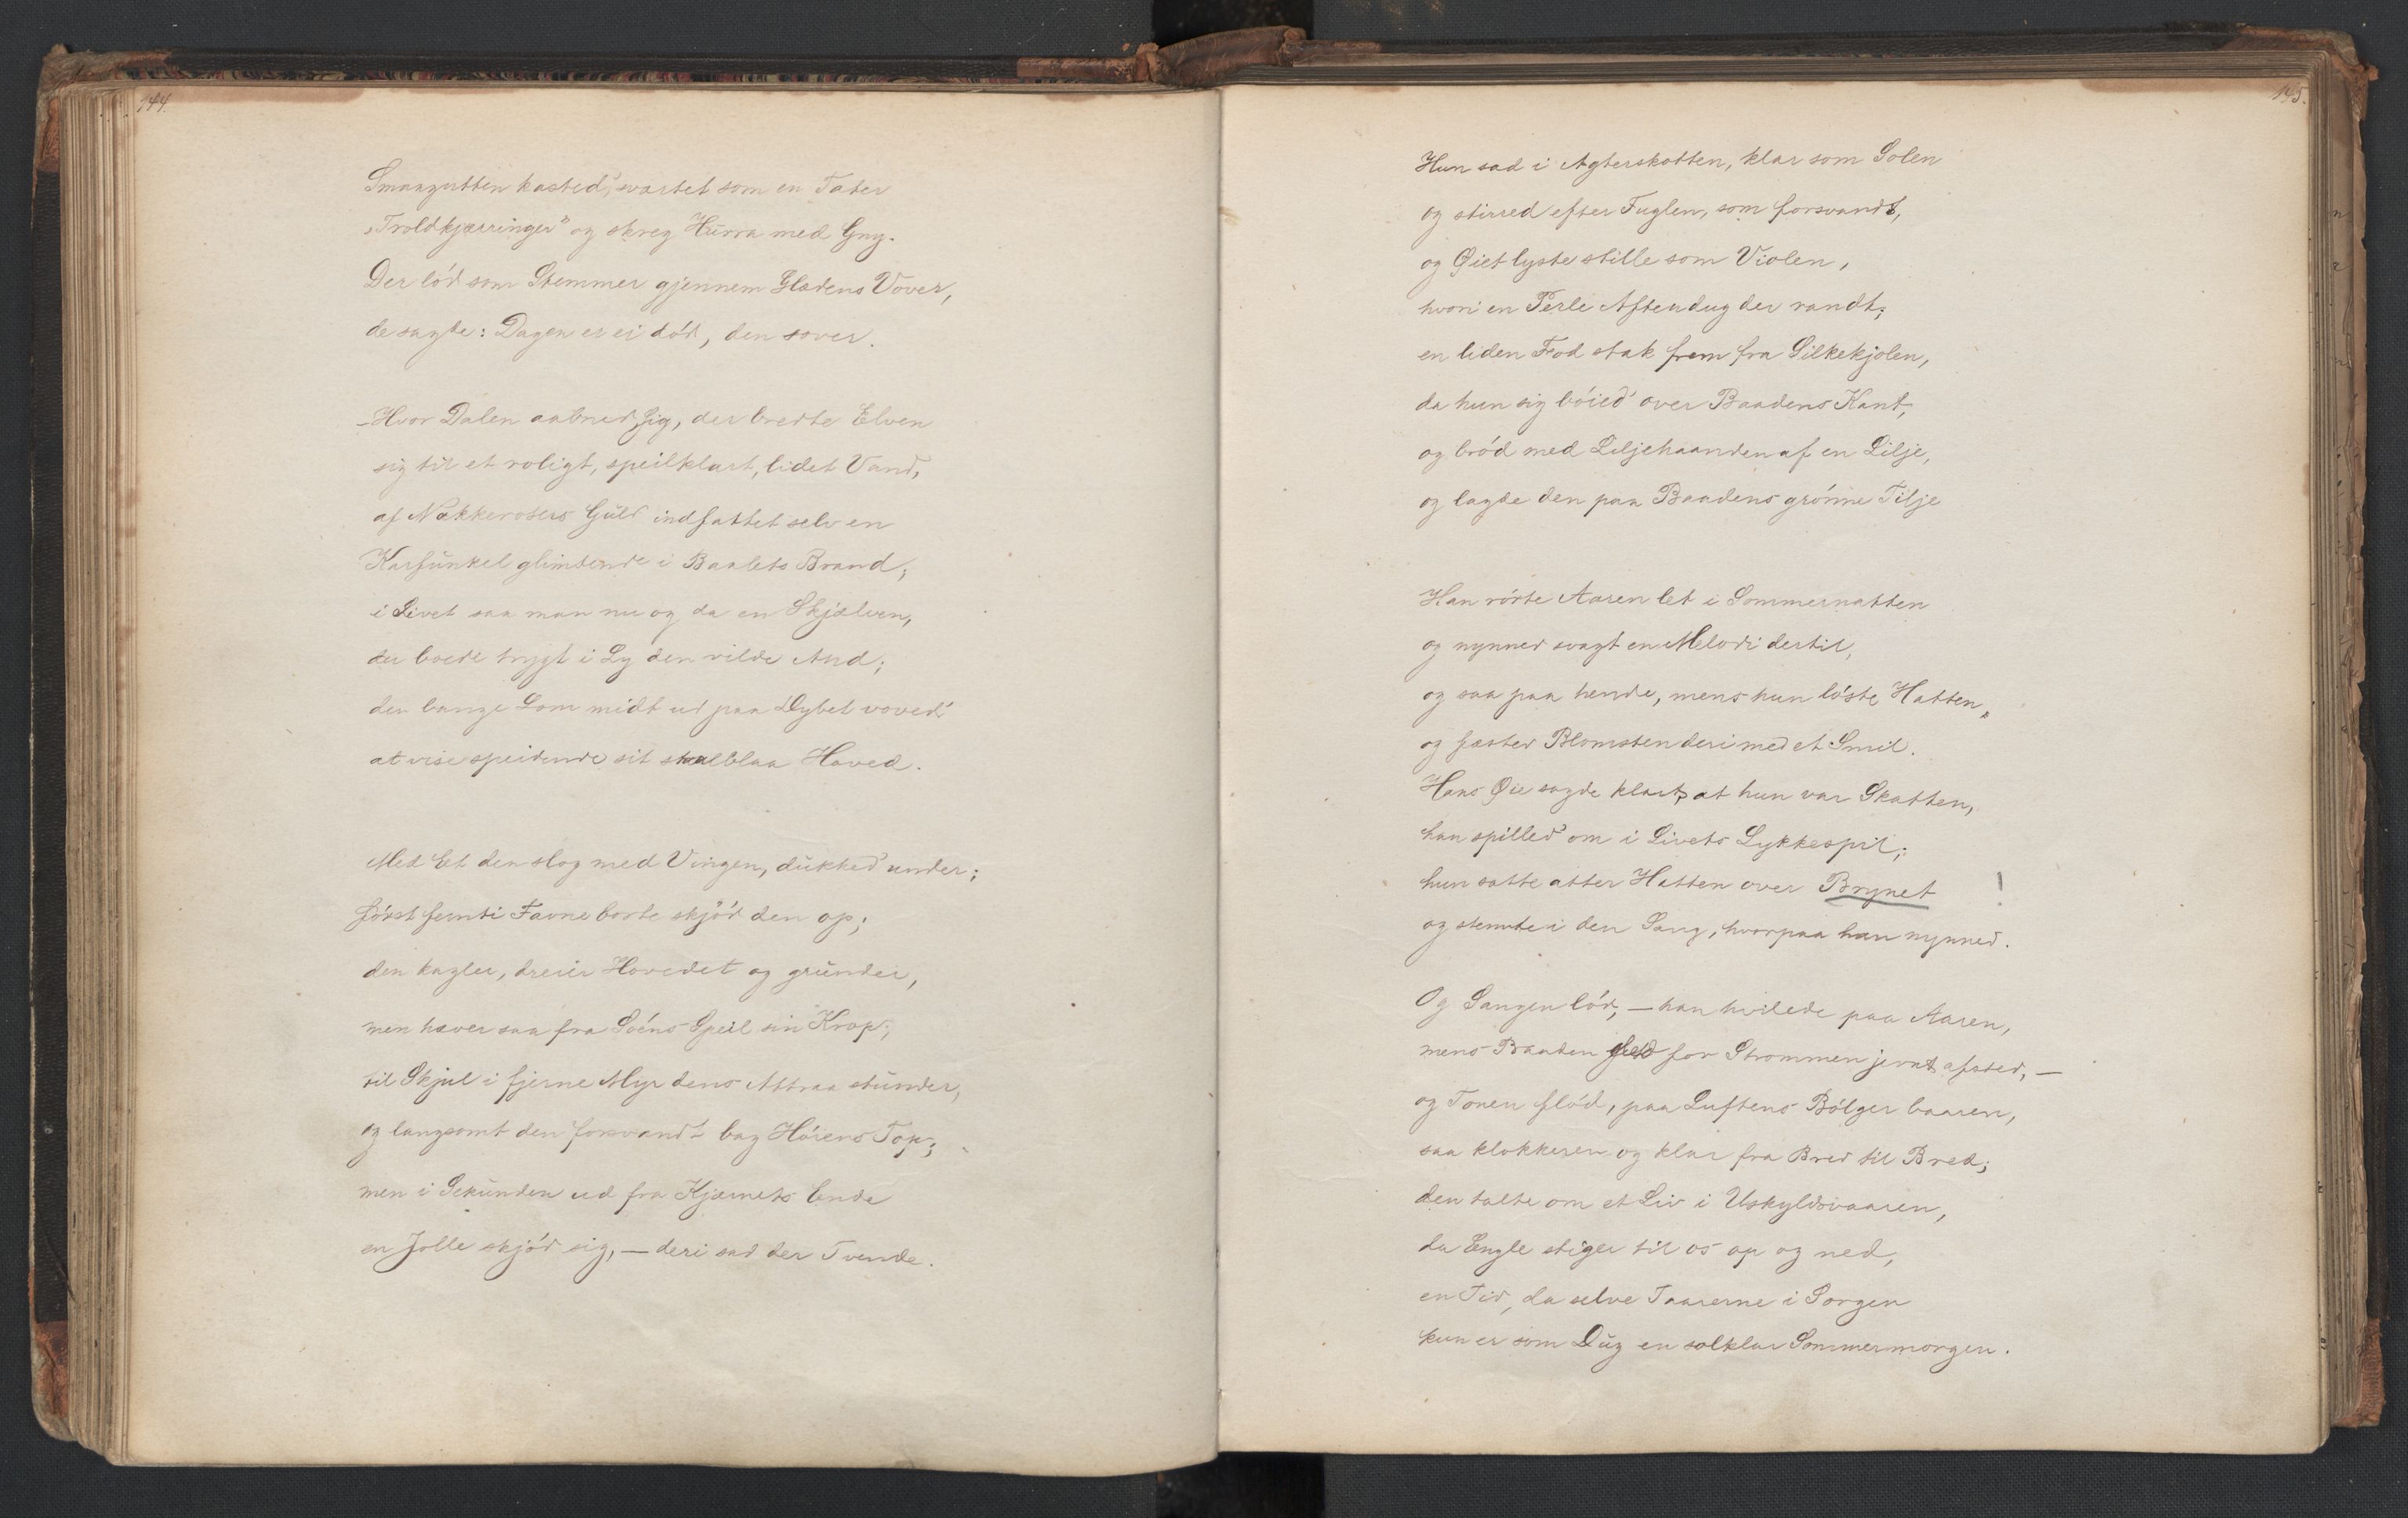 144.
Smaagutten kasted', svartet som en Tater
„Troldkjærringer" og skreg Hurra med Gny.
Der lød som Stemmer gjennem Glædens Vover,
de sagde: Dagen er ei død, den sover.
– Hvor Dalen aabned sig, der bredte Elven
sig til et roligt, speilklart, lidet Vand,
af Nøkkerosers Guld indfattet selv en
Karfunkel glimtende i Baalets Brand;
i Sivet saa man nu og da en Skjælven,
der boede trygt i Ly den vilde And;
den bange Lom midt ud paa Dybet voved'
at vise speidende sit staalblaa Hoved.
Med Et den slog med Vingen, dukked' under;
først femti Favne borte skjød den op;
den kagler, dreier Hovedet og grunder,
men hæver saa fra Søens Speil sin Krop;
til Skjul i fjerne Myr dens Attraa stunder,
og langsomt den forsvandt bag Höiens Top;
men i Sekunden ud fra Kjærnets Ende
en Jolle skjød sig, — deri sad der Tvende.
145.
Hun sad i Agterskotten, klar som Solen
og stirred efter Fuglen, som forsvandt,
og Øiet lyste stille som Violen,
hvori en Perle Aftendug der randt;
en liden Fod stak frem fra Silkekjolen,
da hun sig böied' over Baadens Kant,
og brød med Liljehaanden af en Lilje,
og lagde den paa Baadens grønne Tilje
Han rørte Aaren let i Sommernatten
og nynned svagt en Melodi dertil,
og saa paa hende, mens hun løste Hatten,
og fæsted Blomsten deri med et Smil.
Hans Øie sagde klart, at hun var Skatten,
han spilled' om i Livets Lykkespil;
hun satte atter Hatten over Brynet !
og stemte i den Sang, hvorpaa han nynned.
Og Sangen lød, — han hvilede paa Aaren,
mens Baaden gled for Strømmen jevnt afsted, —
og Tonen flød, paa Luftens Bølger baaren,
saa klokkeren og klar fra Bred til Bred;
den talte om et Liv i Uskyldsvaaren,
da Engle stiger til os op og ned,
en Tid, da selve Taarerne i Sorgen
kun er som Dug en solklar Sommermorgen.